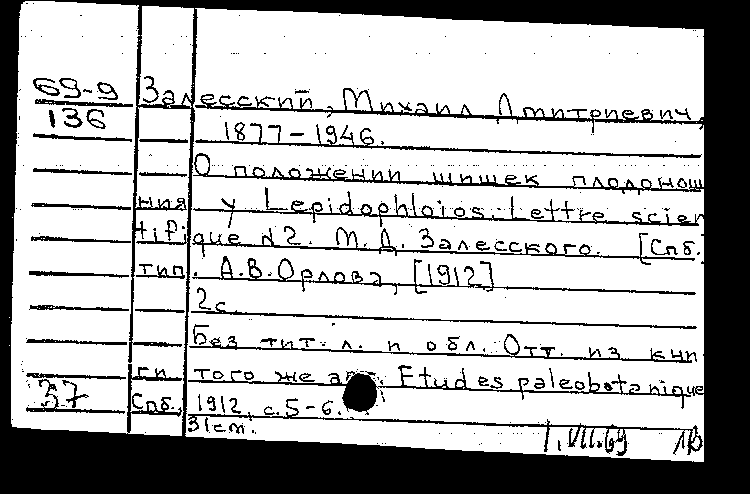 69-9
136
Залесский, Михаил Дмитриевич,
1877-1946.
О положении шишек плодонош
ния у Lepidophloios. Lettre scien
tifique №2. М.Д. Залесского. [Спб.
тип. А.В.Орлова, [1912]
2с.
Без тит. л. и обл. Отт. из кни
ги того же авт. Etudes paleobotanique
Спб., 1912, с.5-6.
37
31см.
1.VII.69